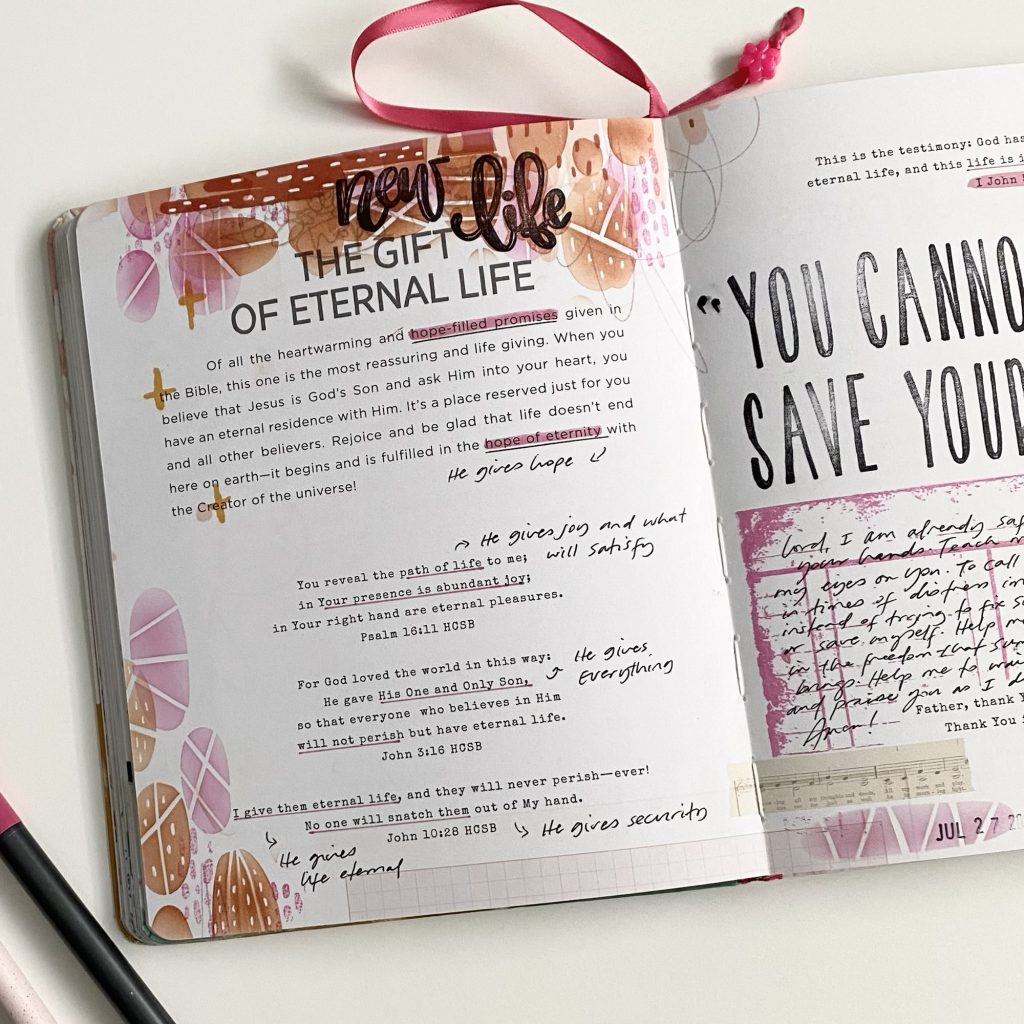 new life
THE GIFT
OF ETERNAL LIFE
Of all the heartwarming and hope-filled promises given in
the Bible, this one is the most reassuring and life giving. When you
believe that Jesus is God's Son and ask Him into your heart, you
have an eternal residence with Him. It's a place reserved just for you
and all other believers. Rejoice and be glad that life doesn't end
here on earth—it begins and is fulfilled in the hope of eternity with
the Creator of the universe!
He gives hope
He gives joy and what
will satisfy
You reveal the path of life to me;
in Your presence is abundant joy;
in Your right hand are eternal pleasures.
Psalm 16:11 HCSB
For God loved the world in this way:
He gave His One and Only Son,
so that everyone who believes in Him
will not perish but have eternal life.
John 3:16 HCSB
He gives
Everything
I give them eternal life, and they will never perish—ever!
No one will snatch them out of My hand.
John 10:28 HCSB
He gives security
He gives
life eternal
This is the testimony: God has
eternal life, and this life is i
I John
"YOU CANNO
SAVE YOU
Lord, I am already saf
your hands. Teach m
my eyes on you. To call
in times of distress in
instead of trying to fix
or save myself. Help me
in the freedom that
brings. Help me to
and praise you as I d
Amen!
Father, thank Y
Thank You
JUL 27 20